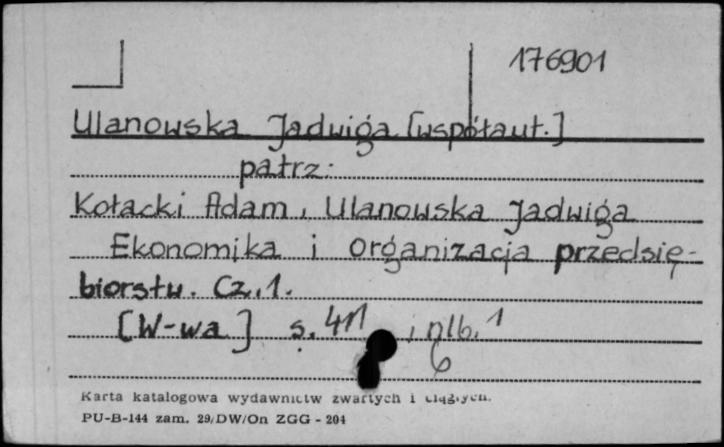 176901
Ulanowska Jadwiga [współaut.]
patrz:
Kołacki Adam, Ulanowska Jadwiga
Ekonomika i organizacja przedsię-
biorstw. Cz. 1.
[W-wa] s. 411, nlb. 1
6
Karta katalogowa wydawnictw zwartych i ciągłych.
PU-B-144 zam. 29/DW/On ZGG - 204